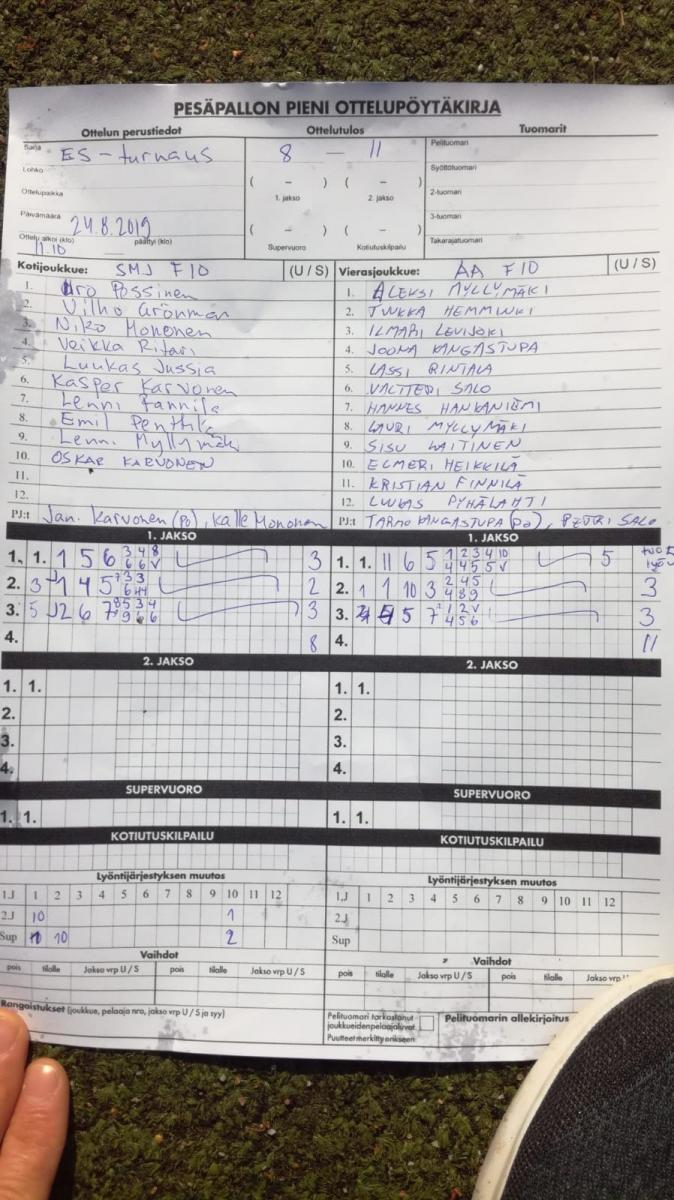 PESÄPALLON PIENI OTTELUPÖYTÄKIRJA
Ottelun perustiedot Ottelutulos Tuomarit
Sarja ES-turnaus 8 — 11 Pelituomari
Lohko Syöttötuomari
Ottelupaikka ( – ) ( – ) 2-tuomari
1. jakso 2. jakso
Päivämäärä 24.8.2019 ( – ) ( – ) 3-tuomari
Ottelu alkoi (klo) 11.10 päättyi (klo) Supervuoro Kotiutuskilpailu Takarajatuomari
Kotijoukkue: SMJ F10 (U / S) Vierasjoukkue: AA F10 (U / S)
1. Possinen 1. ALEKSI MYLLYMÄKI
2. Vilho Grönman 2. JUKKA HEMMINKI
3. Niko Mononen 3. ILMARI LEVIJOKI
4. Veikka Ritari 4. JOONA KANGASTUPA
5. Luukas Jussia 5. LASSI RINTALA
6. Kasper Karvonen 6. VALTTERI SALO
7. Lenni Pannila 7. HANNES HANKANIEMI
8. Emil Penttilä 8. LAURI MYLLYMÄKI
9. Lenni Myllymäki 9. SISU LAITINEN
10. OSKAR KARVONEN 10. ELMERI HEIKKILÄ
11. 11. KRISTIAN FINNILÄ
12. 12. LUKAS PYHÄLAHTI
PJ:t Jan. Karvonen (PJ), Kalle Mononen PJ:t TARMO KANGASTUPA (PJ), PETRI SALO
1. JAKSO 1. JAKSO
1. 1. 1 5 6 3 4 8 6 6 V 3 1. 1. 11 6 5 1 2 3 4 10 4 4 5 5 V 5
2. 3 1 4 5 2 2. 1 1 10 3 2 4 5 4 8 9 3
3. 5 2 6 7 3 3. 5 7 1 2 V 4 5 6 3
4. 8 4. 11
2. JAKSO 2. JAKSO
1. 1. 1. 1.
2. 2.
3. 3.
4. 4.
SUPERVUORO SUPERVUORO
1. 1. 1. 1.
KOTIUTUSKILPAILU KOTIUTUSKILPAILU
Lyöntijärjestyksen muutos Lyöntijärjestyksen muutos
1.J 1 2 3 4 5 6 7 8 9 10 11 12 1.J 1 2 3 4 5 6 7 8 9 10 11 12
2.J 10 1 2.J
Sup 10 2 Sup
Vaihdot Vaihdot
pois tilalle Jakso vrp U / S pois tilalle Jakso vrp U / S pois tilalle Jakso vrp U / S pois tilalle Jakso vrp U
Rangaistukset (joukkue, pelaaja nro, jakso vrp U / S ja syy) Pelituomari tarkastanut joukkueidenpelaajaluvat. Pelituomarin allekirjoitus
Puutteet merkitty erikseen